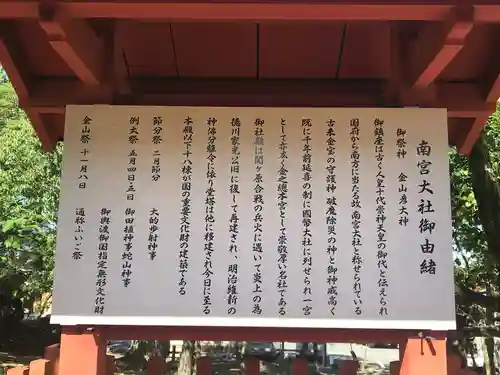 南宮大社御由緒
御祭神　金山彦大神
御鎮座は古く人皇十代崇神天皇の御代と伝えられ
国府から南方に当たる故、南宮大社と称せられている
古来金宮の守護神　破魔除災の神と御神威高く
既に千年前延喜の制に國幣大社に列せられ一宮
として亦永く金之總本宮として崇敬厚い名社である
御社殿は関ヶ原合戦の兵火に遇いて炎上の為
徳川家光公旧に復して再建され、明治維新の
神佛分離令に依り堂塔は他に移建され今日に至る
本殿以下十八棟が國の重要文化財の建築である
節分祭　二月節分　大的歩射神事
例大祭　五月四日・五日　御田植神事蛇山神事
御輿渡御国指定無形文化財
金山祭　十一月八日　通称ふいご祭